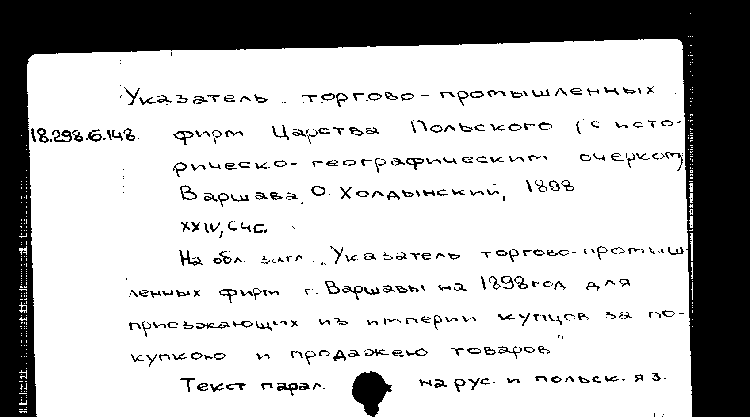 Указатель торгово-промышленных
18.298.6.148. фирм Царства Польского (с исто-
рическо-географическим очерком)
Варшава, О. Холдынский, 1898
XXIV, 64 с.
На обл. загл. „Указатель торгово-промыш
ленных фирм г. Варшавы на 1898 год для
приезжающих из империи купцов за по-
купкою и продажею товаров"
Текст парал. на рус. и польск. яз.